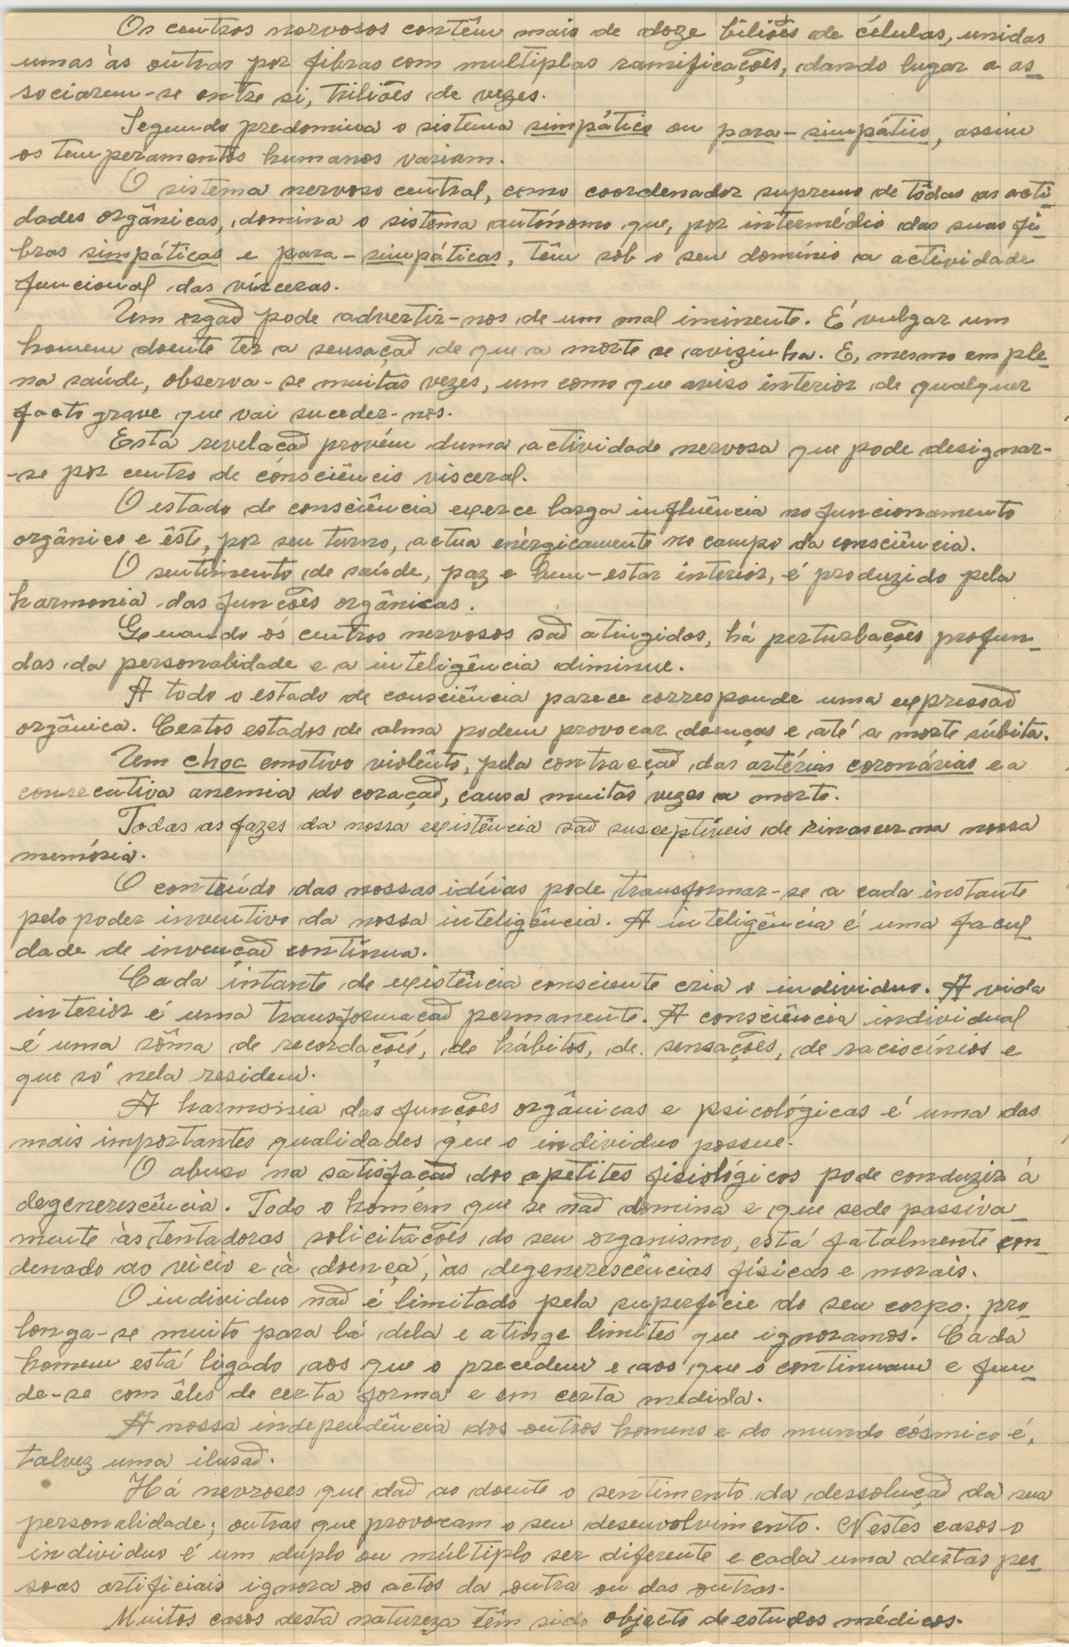 Os centros nervosos contêm mais de doze biliões de células, unidas
umas às outras por fibras com multiplas ramificações, dando lugar a as-
sociarem-se entre si, triliões de vezes.
Segundo predomina o sistema simpático ou para-simpático, assim
os temperamentos humanos variam.
O sistema nervoso central, como coordenador supremo de tôdas as acti-
dades orgânicas, domina o sistema autónomo que, por intermédio das suas fi-
bras simpáticas e para-simpáticas, têm sob o seu domínio a actividade
funcional das vísceras.
Um orgaõ pode advertir-nos de um mal iminente. É vulgar um
homem doente ter a sensaçaõ de que a morte se avizinha. E, mesmo em ple-
na saúde, observa-se muitas vezes, um como que aviso interior de qualquer
facto grave que vai suceder-nos.
Esta revelaçaõ provém duma actividade nervosa que pode designar-
-se por centro de consciência visceral.
O estado de consciência exerce larga influência no funcionamento
orgânico e êste, por seu turno, actua enèrgicamente no campo da consciência.
O sentimento de saúde, paz e bem-estar interior, é produzido pela
harmonia das funções orgânicas.
Quando os centros nervosos saõ atingidos, há perturbações profun-
das da personalidade e a inteligência diminue.
A todo o estado de consciência parece corresponde uma expressaõ
orgânica. Certos estados de alma podem provocar doenças e até a morte súbita.
Um choc emotivo violênto, pela contracçaõ das artérias coronárias e a
consecutiva anemia do coraçaõ, causa muitas vezes a morte.
Todas as fazes da nossa existência saõ susceptíveis de rinascer na nossa
memória.
O conteúdo das nossas idéias pode transformar-se a cada instante
pelo poder inventivo da nossa inteligência. A inteligência é uma facul-
dade de invençaõ contínua.
Cada intante de existência consciente cria o individuo. A vida
interior é uma transformaçaõ permanente. A consciência individual
é uma sôma de recordações, de hábitos, de sensações, de raciocínios e
que só nela residem.
A harmonia das funções orgânicas e psicológicas é uma das
mais importantes qualidades que o individuo possue.
O abuso na satisfaçaõ dos apetites fisiológicos pode conduzir à
degenerescência. Todo o homem que se naõ domina e que sede passiva-
mente às tentadoras solicitações do seu organismo, está fatalmente con-
denado ao vicio e à doença, às degenerescências físicas e morais.
O individuo naõ é limitado pela superfície do seu corpo; pro-
longa-se muito para lá dela e atinge limites que ignoramos. Cada
homem está ligado aos que o precedem e aos que o continuam e fun-
de-se com êles de certa forma e em certa medida.
A nossa independência dos outros homens e do mundo cósmico é,
talvez uma ilusaõ.
Há nevroses que daõ ao doente o sentimento da dessoluçaõ da sua
personalidade; outras que provocam o seu desenvolvimento. Nestes casos o
individuo é um duplo ou múltiplo ser diferente e cada uma destas pes-
soas artificiais ignora os actos da outra ou das outras.
Muitos casos desta natureza têm sido objecto de estudos médicos.